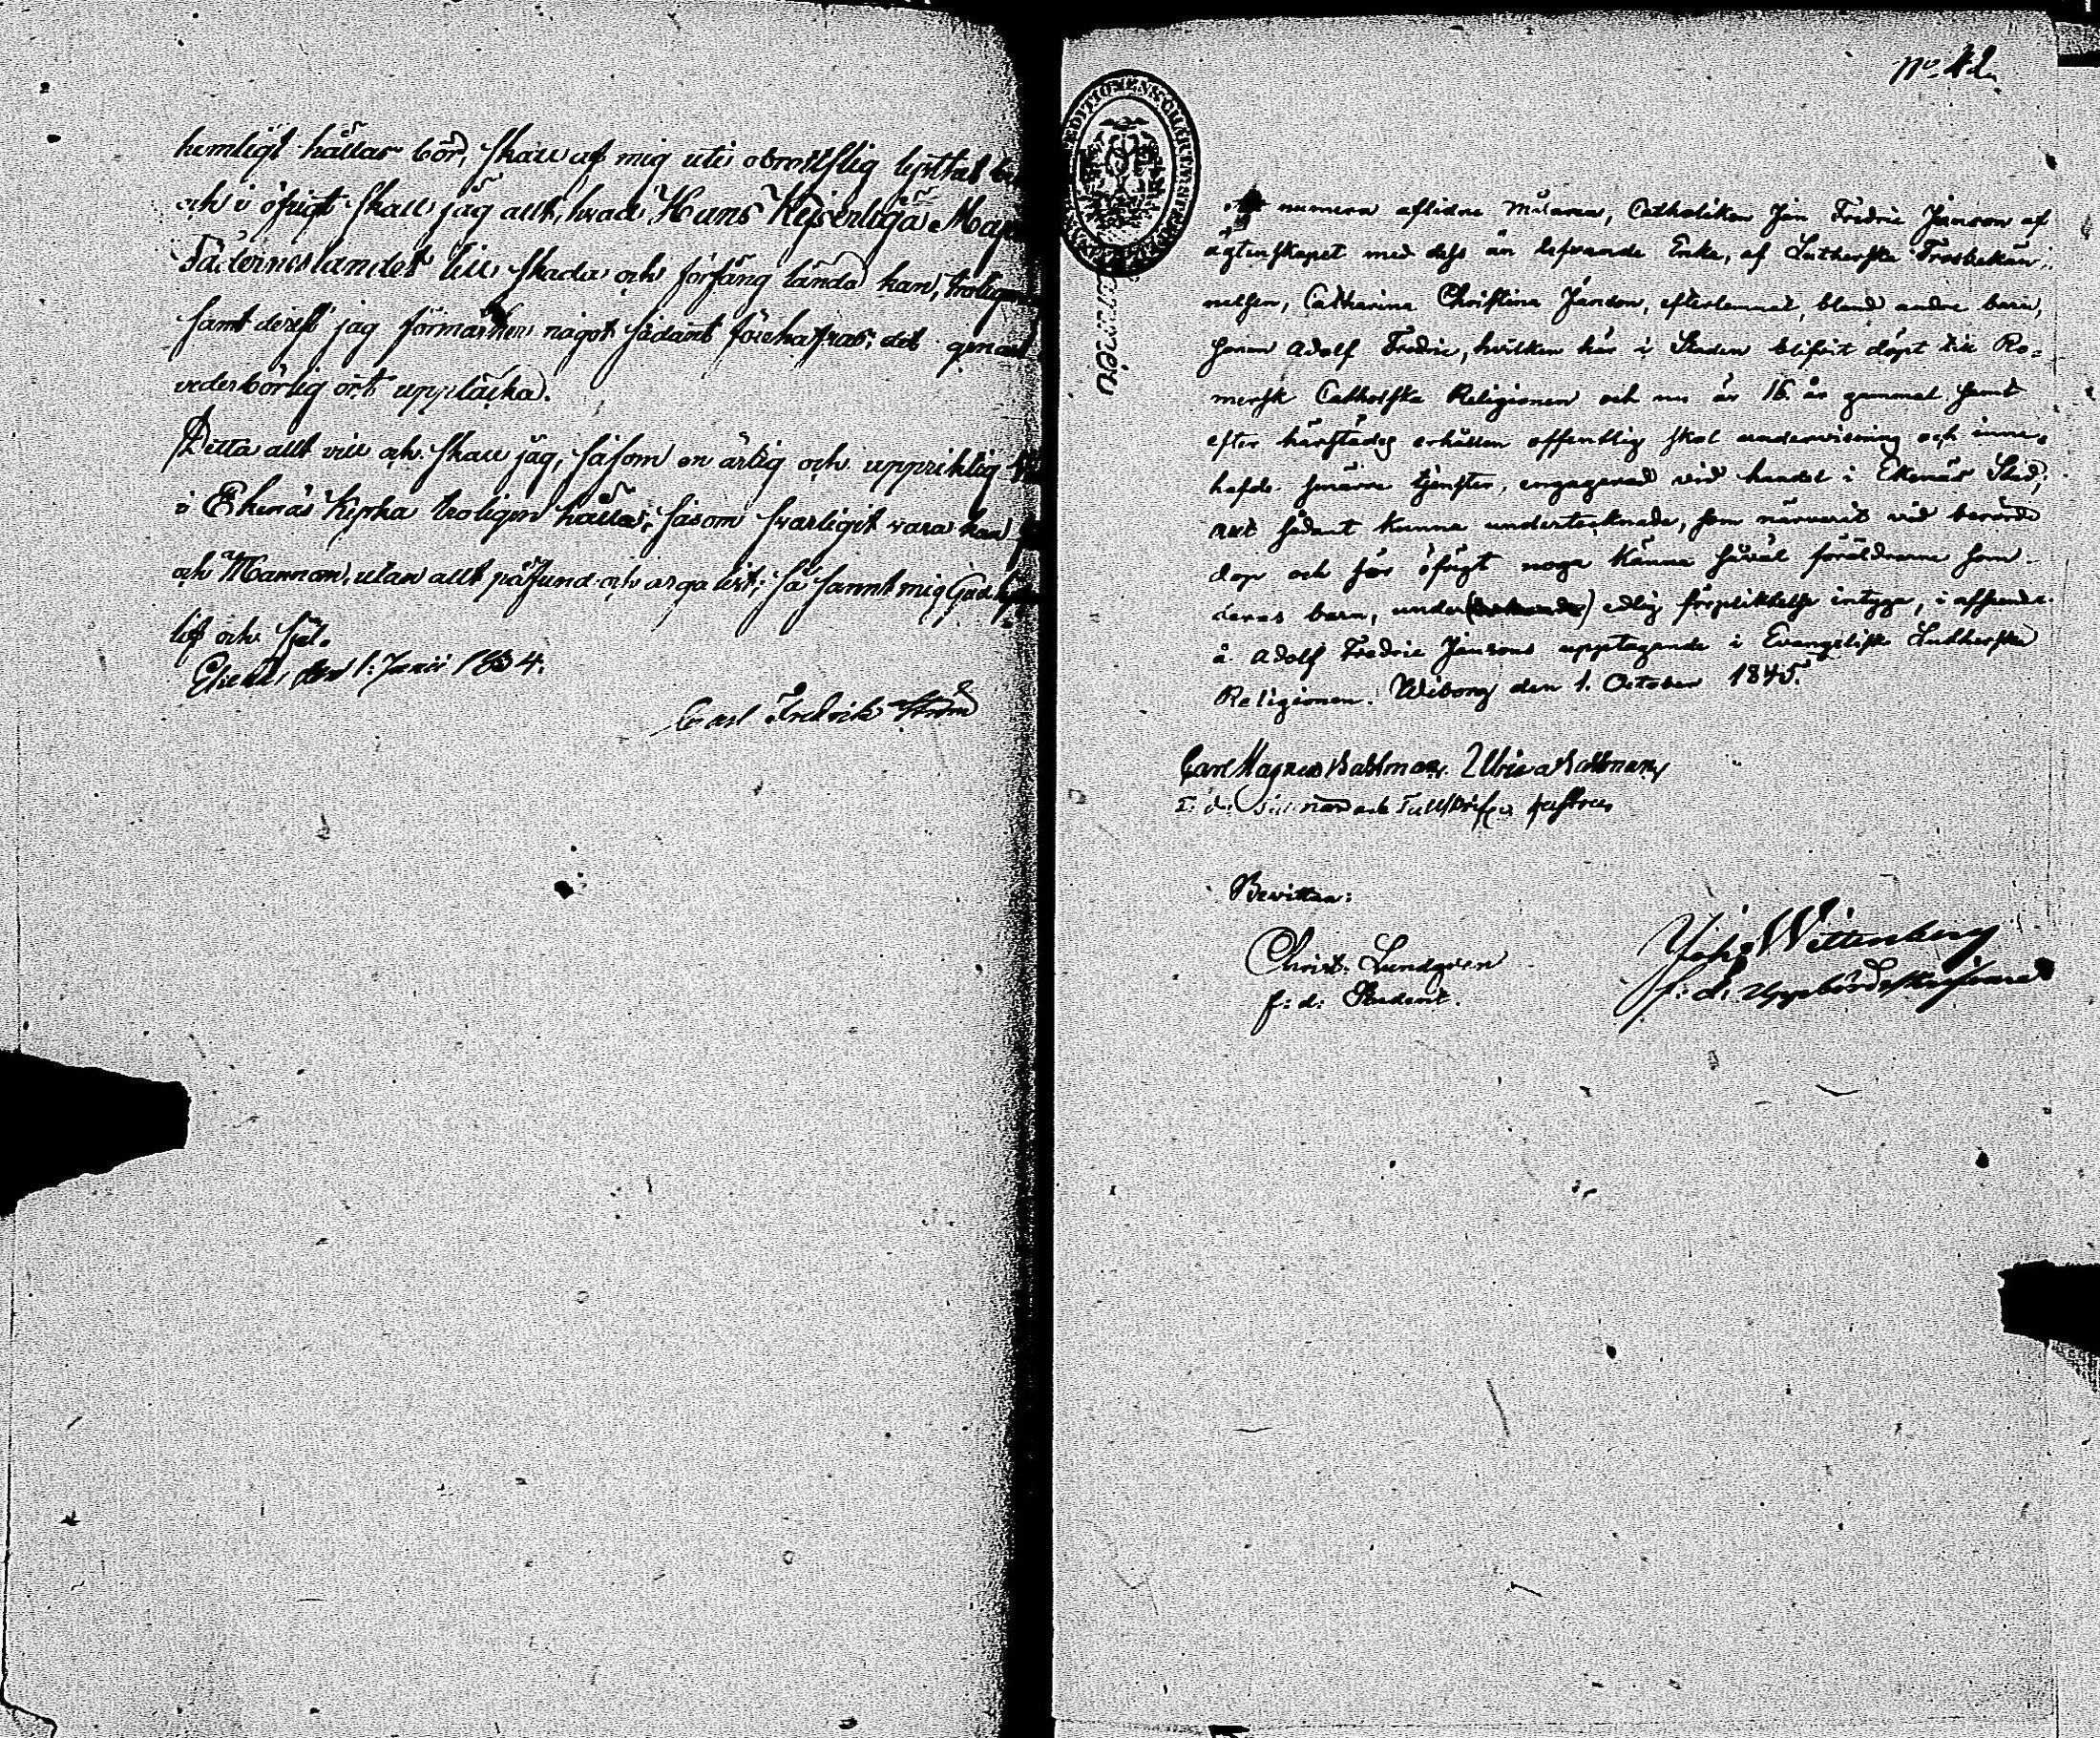 hemligt hållas bör, skall af mig uti obrottslig tysthet
och i öfrigt skall jag allt, hvad Hans Kejserliga
Fäderneslandet till skada och förfång lända kan, troligen
samt derest jag förmärker något sådant förehafvas, det genast
vederbörlig ort upptäcka.
Detta allt vill och skall jag, såsom en ärlig och uppriktig
i Ekenäs Kyrka troligen hålla, såsom svarligit vara kan
och Mannom, utan allt påfund och arga list; Så sannt mig Gud
lif och själ.
Ekenäs, den 1. Junii 1834.
Carl Fredrik Ström
No. 42.
numera aflidne Målaren, Catholiken Jan Fredric Janson af
ägtenskapet med dess än lefvande Enka, af Lutherska Trosbekän-
nelsen, Catharina Christina Janson, efterlemnat, bland andre barn,
sonen Adolf Fredric, hvilken här i Staden blifvit döpt till Ro-
mersk Catholska Religionen och nu är 16 år gammal samt
efter härstädes erhållen offentlig skol undervisning och inne-
hafde smärre tjenster, engagerad vid handel i Ekenäs Stad;
att sådant kunna undertecknade, som närvarit vid berörde
dop och för öfrigt noga känna såväl föräldrarne som
deras barn, under edlig förpliktelse intyga, i afseende
å Adolf Fredric Jansons upptagande i Evangelisk Lutherska
Religionen. Wiborg den 1. October 1845.
Carl Magnus
Bevittna:
Christ. Lundgren
f: d: Student.
Joh. Wittenberg
f: d: Uppbördsskrifvare